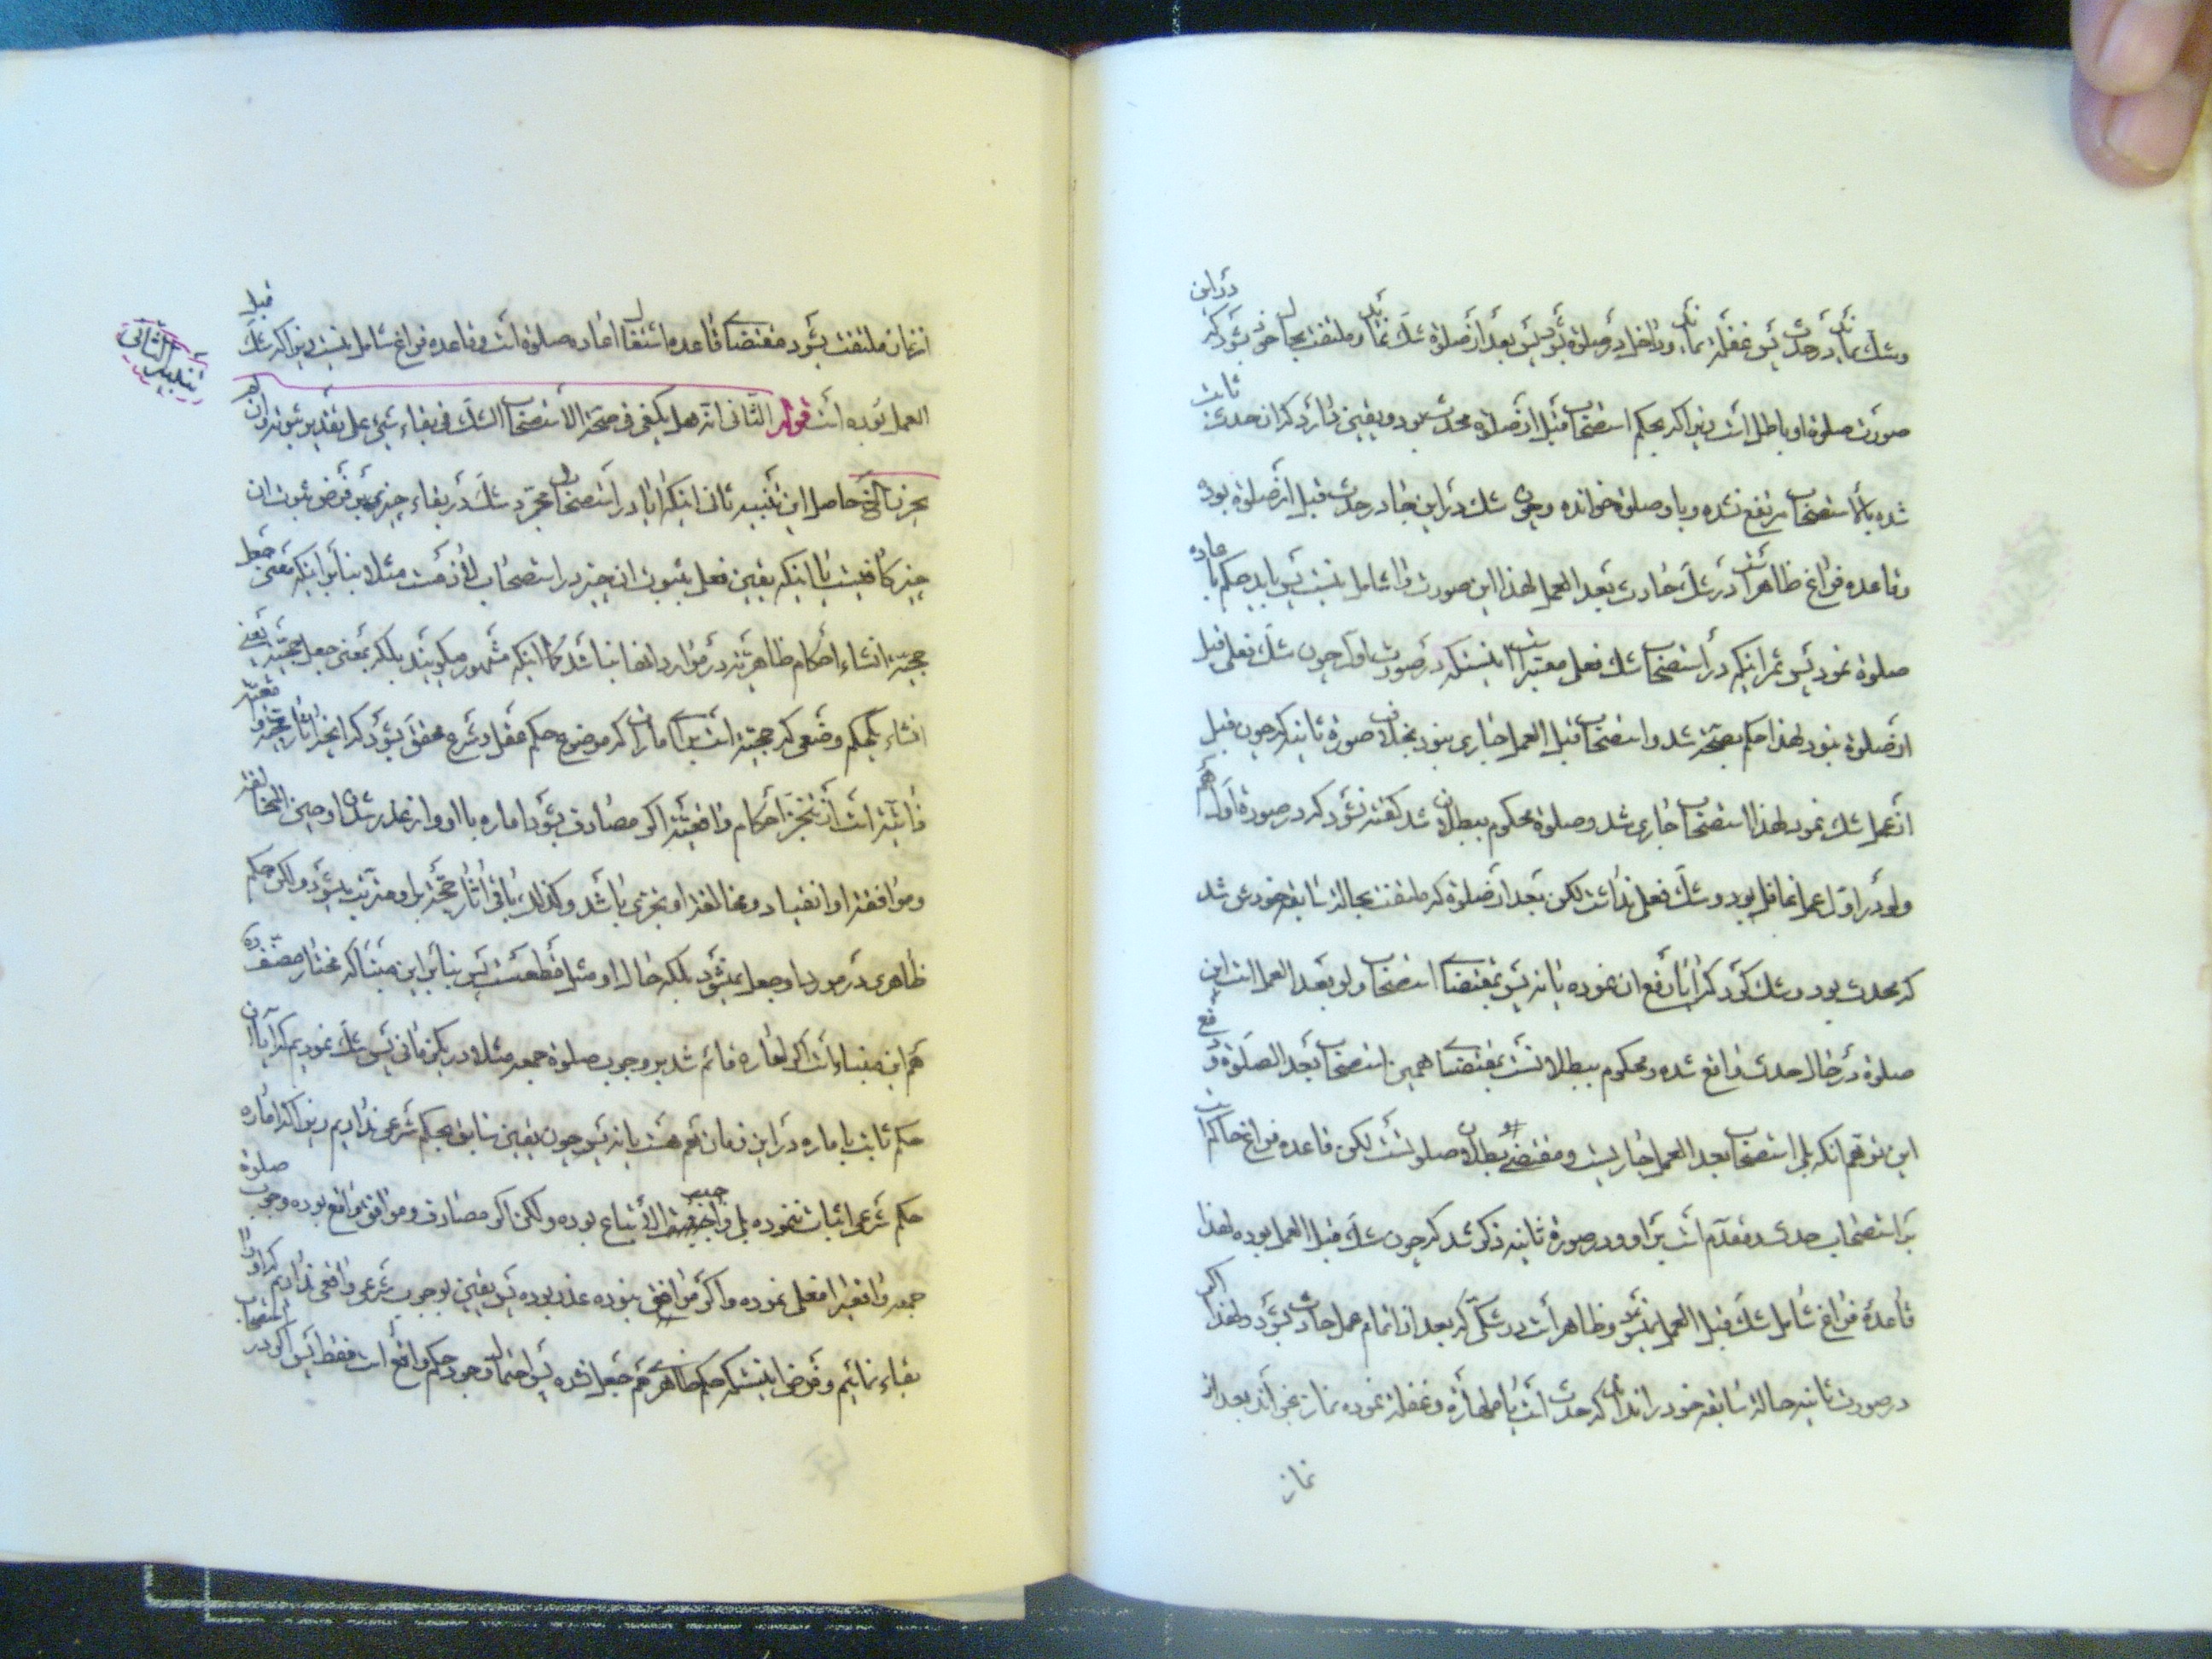 وشک نماید در حدث پس غفلة نماید و داخل در صلوة شود پس بعد از صلوة شک نماید و ملتفت بحال خود شود که در این
صورت صلوة او باطل است زیرا که بحکم استصحاب قبل از صلاة محدث بود و یقین ندارد که ان حدث ثابت
شده با استصحاب مرتفع نشده و با او صلوة خوانده و چون شک در این جا در حدث قبل از صلوة بوده
وقاعده فراغ ظاهرا در شک حادث بعد العمل است لهذا این صورت را شامل نیست پس باید حکم باعاده
صلوة نمود پس ثمر اینکه در استصحاب شک فعلی معتبر است اینستکه در صورت اول چون شک فعلی قبل
از صلوة نبود لهذا حکم بصحة شد و استصحاب قبل العمل جاری نبود بخلاف صورة ثانیه که چون قبل
از عمل شک نمود لهذا استصحاب جاری شد و صلوة محکوم ببطلان شد گفته نشود که در صورة اول
ولو در اول عمل غافل بود و شک فعلی نداشت لکن بعد از صلوة که ملتفت بحالة سابقه خودش شد
که محدث بود و شک کرد که ایا رفع ان نموده یا نه پس بمقتضای استصحاب ولو بعد العمل است این
صلوة در حال حدث واقع شده و محکوم ببطلانست بمقتضای همین استصحاب بعد الصلوة و دفع
این توهم انکه بلی استصحاب بعد العمل جاریست و مقتضی بطلان صلوتست لکن قاعده فراغ حاکم است
بر استصحاب حدث و مقدم است بر او و در صورة ثانیه ذکر شد که چون شک قبل العمل بوده لهذا
قاعدة فراغ شامل شک قبل العمل نمیشود و ظاهر است در شکی که بعد از اتمام عمل حادث شود و لهذا اگر
در صورت ثانیه حالة سابقه خود را نداند که حدث است یا طهارة و غفلة نموده نماز بخواند بعد از
نماز
از نماز ملتفت بشود مقتضای قاعده اشتغال اعاده صلوة است و قاعده فراغ شامل نیست زیرا که شک قبل
العمل بوده است قوله الثانی انه هل یکفی فی صحة الاستصحاب الشک فی بقاء شیئ علی تقدیر ثبوته وان لم
یحرز الخ حاصل این تنبیه ثانی اینکه ایا در استصحاب مجرد شک در بقاء چیزی بر فرض ثبوت ان
چیز کافیست یا اینکه یقین فعلی بثبوت ان چیز در استصحاب لازمست مثلا بنا بر اینکه معنی جعل
حجیة انشاء احکام ظاهریه در موارد انها نباشد کما اینکه مشهور میگویند بلکه بمعنی جعل حجیة یعنی
انشاء یکحکم وضعی که حجیة است برای اماره که موضوع حکم عقل و شرع محقق بشود که انچه اثار حجة
ذاتیة است از تنجز احکام واقعیة اگر مصادف بشود اماره با او و از عذر شدن او حین المخالفة
و موافقة او انقیاد و مخالفة او تجری باشد و کذلک باقی اثار حجة بر او مترتب بشود و لکن حکم
ظاهری در مورد او جعل نمیشود بلکه حال او مثل قطعست پس بنا بر این مبنا که مختار مصنف ره
هم این مبناء است اگر اماره قائم شد بر وجوب صلوة جمعه مثلا در یکزمانی پس شک نمودیم که ایا ان
حکم ثابت باماره در این زمان هم هست یا نه پس چون یقین سابق بحکم شرعی نداریم زیرا که اماره
حکم شرعی اثبات ننموده بل واجب الأتباع بوده و لکن اگر مصادف و موافق بواقع بوده وجوب صلوة
جمعه واقعی را فعلی نموده و اگر موافق نبوده عذر بوده پس یقین بوجوب شرعی واقعی نداریم که او را
بقاء نمائیم و فرض اینستکه حکم ظاهری هم جعل نشده پس احتمال وجود حکم واقع است فقط پس اگر در استصحاب
تنبیه الثانی